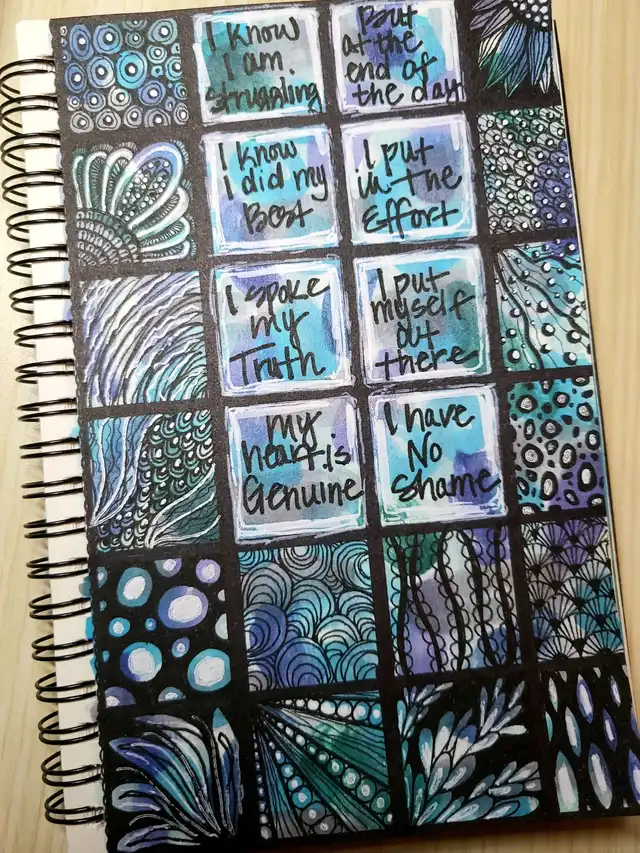 I know
I am
struggling
But
at the
end of
the day
I know
I did my
Best
I put
in the
Effort
I spoke
my
Truth
I put
myself
out
there
my
heart is
Genuine
I have
No
Shame